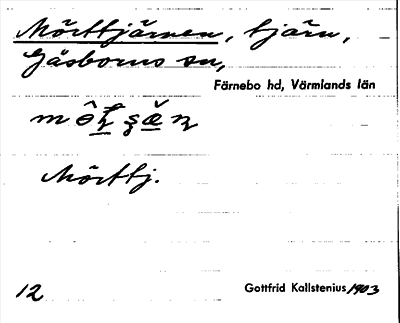 Mörttjärnen, tjärn,
Gåsborns sn,
Färnebo hd, Värmlands län
Mörttj.
12
Gottfrid Kallstenius 1903